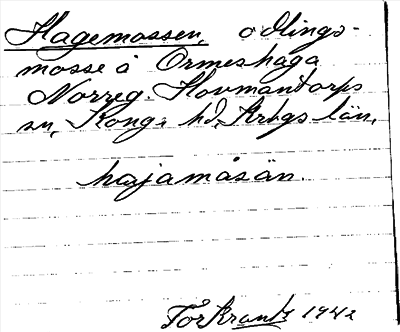 Hagemossen, odlings-
mosse å Ormeshaga
Norreg. Hovmantorps
sn, Kong. hd, Krbgs län.
hajamåsän.
Tör Krantz 1942